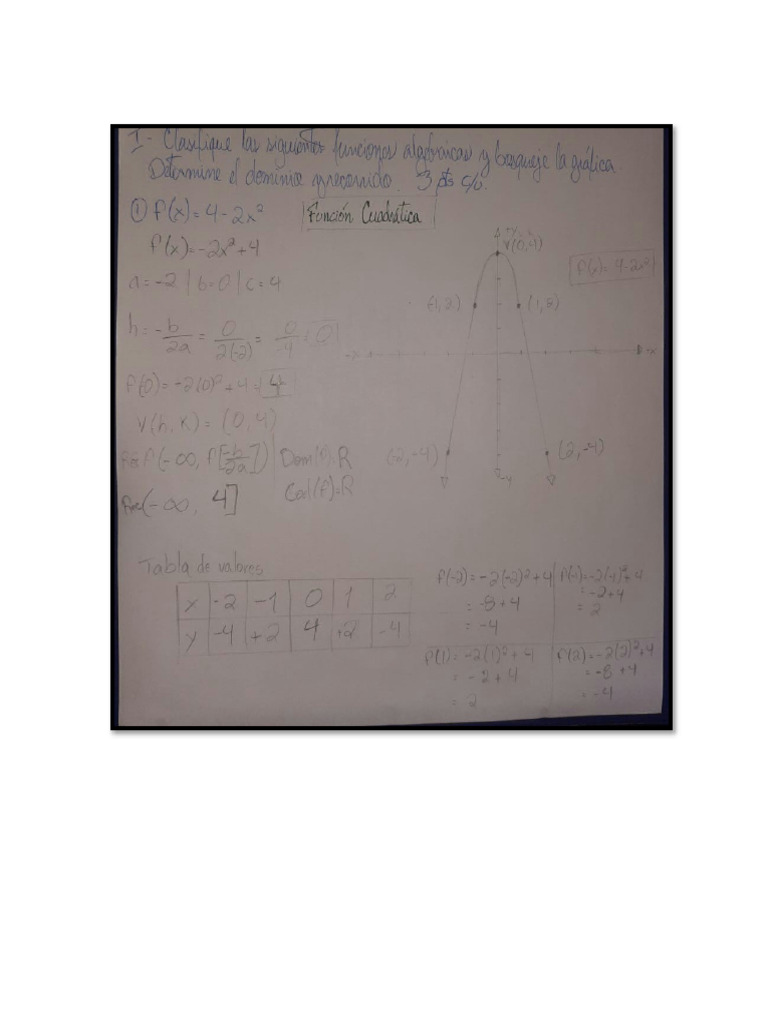 I- Clasifique las siguientes funciones algebraicas y bosqueje la gráfica.
Determine el dominio y recorrido. 3 pts c/u.
① f(x) = 4 - 2x²
Función Cuadrática
f(x) = -2x² + 4
a = -2 | b = 0 | c = 4
h = -b/2a = 0/2(-2) = 0/-4 = 0
f(0) = -2(0)² + 4 = 4
V(h, K) = (0, 4)
(-∞, f[-b/2a]) | Dom(f)=R
Rec(-∞, 4]
Cod(f)=R
+y
V(0,4)
f(x) = 4-2x²
(-1,2)
(1,2)
-x
+x
(-2,-4)
(2,-4)
-y
Tabla de valores
x -2 -1 0 1 2
y -4 +2 4 +2 -4
f(-2) = -2(-2)² + 4
= -8 + 4
= -4
f(-1) = -2(-1)² + 4
= -2 + 4
= 2
f(1) = -2(1)² + 4
= -2 + 4
= 2
f(2) = -2(2)² + 4
= -8 + 4
= -4